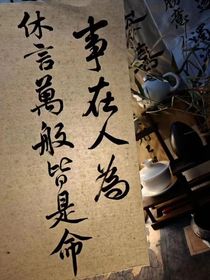 事在人為
休言萬般皆是命